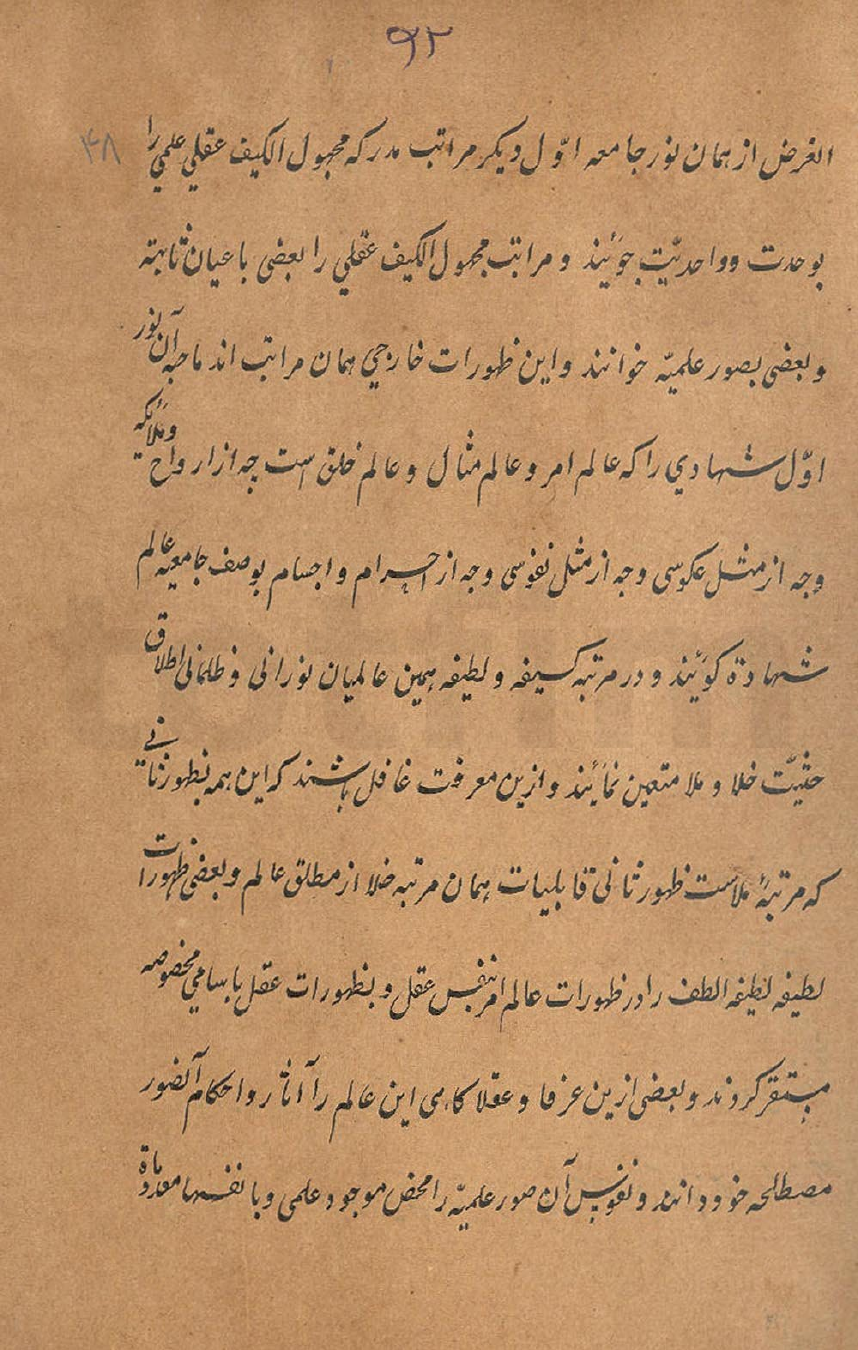 ۹۲
۴۸
الغرض از همان نور جامعه اوّل دیکر مراتب مدرکه مجهول الکیف عقلي علمي را
بوحدت وواحدیّت جوئیند و مراتب مجهول الکیف عقلي را بعضی باعیان ثابته
و بعضی بصور علمیّه خوانند واین ظهورات خارجي همان مراتب اند ماحبه آن نور
اوّل شهادي را که عالم امر و عالم مثال و عالم خلق است چه از ارواح وملائکه
وچه از مثل عکوسی وچه از مثل نفوسی وچه از اجرام و اجسام بوصف جامعیه عالم
شهادة کوئیند و در مرتبه کسیفه و لطیفه همین عالمیان نورانی و ظلمانی اطلاق
حثیّت خلا و ملا متعین نمائیند وازین معرفت غافل باشند که این همه بظهور ثانی
که مرتبهٔ ملاست ظهور ثانی قابلیات همان مرتبه خلا از مطلق عالم و بعضی ظهورات
لطیفه لطیفه الطف را در ظهورات عالم امر بنفس عقل و بظهورات عقل باسامي مخصوصه
مستقر کردند و بعضی ازین عرفا و عقلا کاهی این عالم را آثار واحکام آنصور
مصطلحه خود دانند و نفوس آن صور علمیّه را محض موجود علمی و بانفسها معدماة